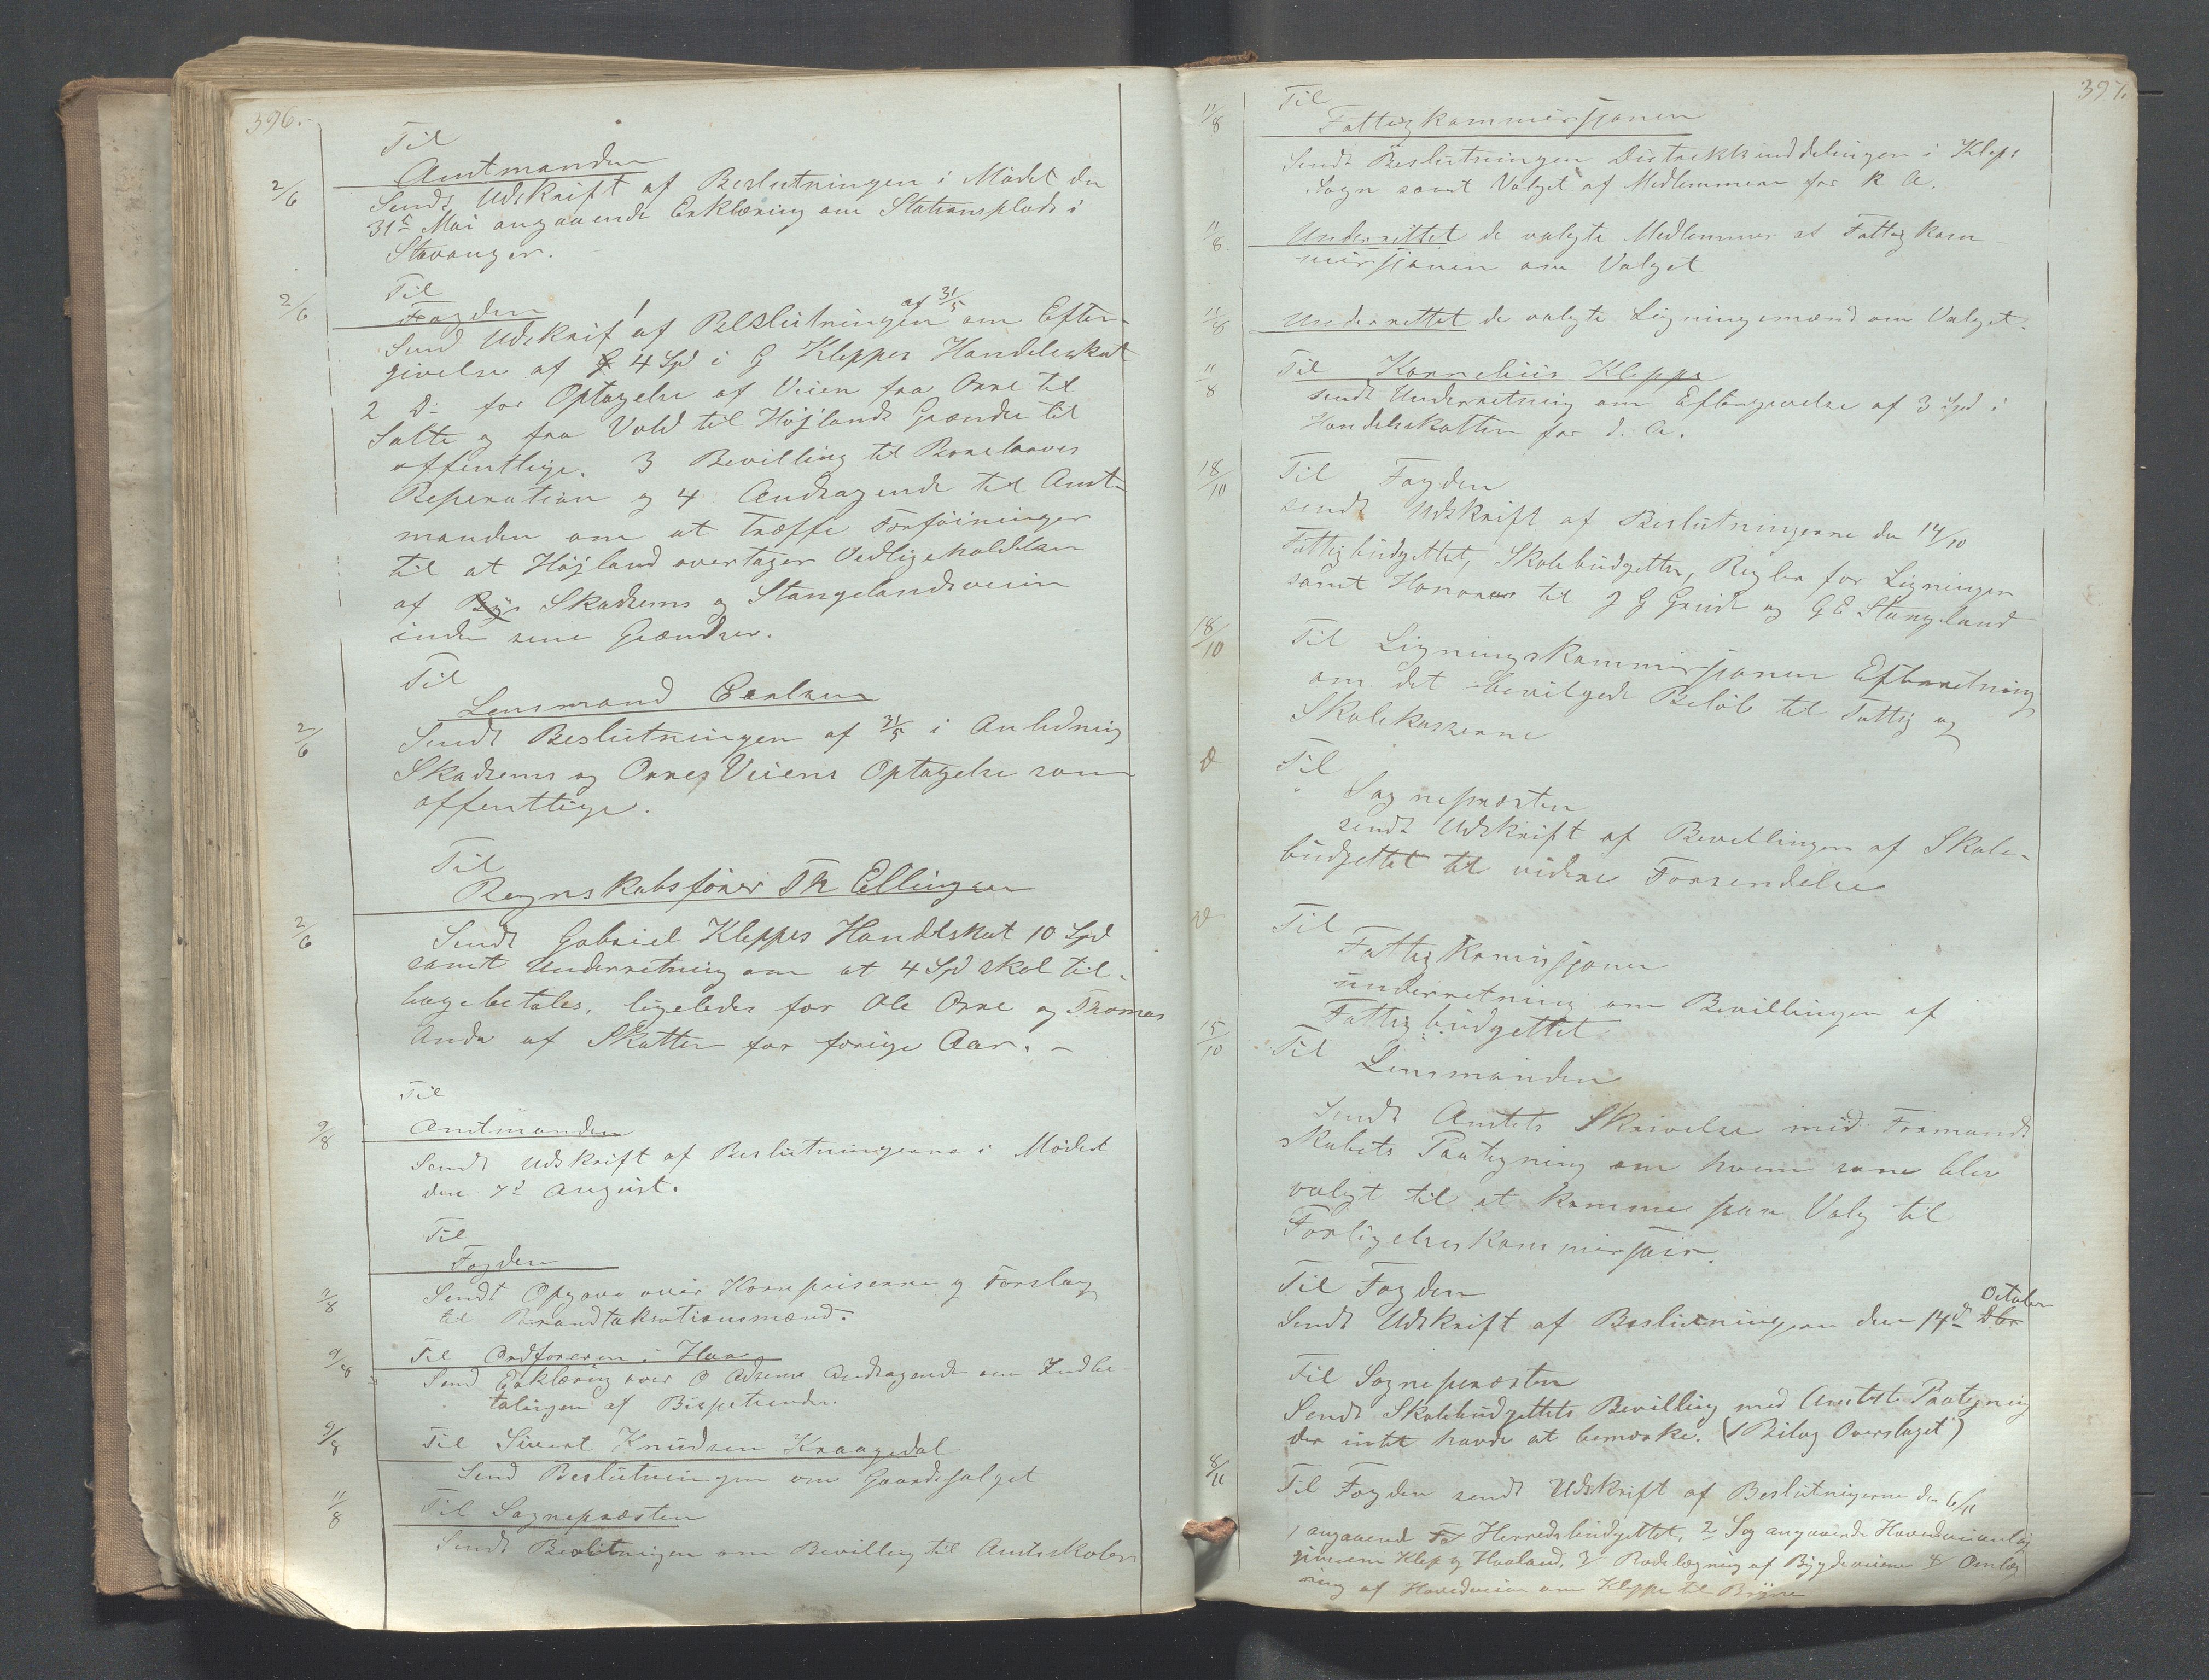 396.
Til
Amtmanden
2/6
Sendt Udskrift af Beslutningen i Mödet den
31te Mai angaaende Erklæring om Stationsplads i
Stavanger.
2/6
Til
Fogden
Send Udskrift af Beslutningen af 31/5 om Efter-
givelse af 4 Spd i G Kleppes Handelsskat
2 D: for Optagelse af Veien fra Orre til
Salte og fra Vold til Höjlands Grændse til
offentlige. 3 Bevilling til Borelaaves
Reperation og 4 Andragende til Amt-
manden om at træffe Forföininger
til at Höjland overtager Vedligeholdelsen
af Skadsems og Stangelandsveien
inden sine Grændser.
Til
Lensmand Carlsen
2/6
Sendt Beslutningen af 31/5 i Anledning
Skadsems og Orres Veiens Optagelse som
offentlige.
Til
Regnskabsförer Th Ellingsen
2/6
Sendt Gabriel Kleppes Handelskat 10 Spd
samt Underretning om at 4 Spd skal til-
bagebetales, ligeledes for Ole Orre og Thomas
Anda af Skatten for forige Aar. -
Til
Amtmanden
9/8
Sendt Udskrift af Beslutningerne i Mödet
den 7de August.
Til
Fogden
11/8
Sendt Opgave over Kornpriserne og Forslag
til Brandtakstionsmænd.
9/8
Til Ordföreren i Haa
Send Erklæring over O Adsens Andragende om Indbe-
talingen af Bispetiender.
9/8
Til Sivert Knudsen Kraagedal
Send Beslutningen om Gaardsalget
11/8
Til Sognepræsten
Sendt Beslutningen om Bevilling til Amtsskolen
397.
11/8
Til
Fattigkommissjonen
Sendt Beslutningen Distriktsinddelingen i Klep
Sogn samt Valget af Medlemmerne for R A.
11/8
Underrettet de valgte Medlemmer at Fattigkom
missjonen om Valget
11/8
Underrettet de valgte Ligningsmænd om Valget.
11/8
Til Kornelius Kleppe
sendt Underretning om Eftergivelse af 3 Spd i
Handelsskatten for d. A.
18/10
Til Fogden
sendt Udskrift af Beslutningerne den 14/10
Fattigbudgettet, Skolebudgettet, Regler for Ligningen
samt Honorar til J G Grude og G E Stangeland
18/10
Til Ligningskommissjonen Efterretning
om det bevilgede Belöb til Fattig og
Skolekasserne
D
Til
Sognepræsten
sendt Udskrift af Bevillingen af Skole-
budgettet til videre Forsendelse
D
Til
Fattigkomissjonen
underretning om Bevillingen af
Fattigbudgettet
15/10
Til
Lensmanden
Sendt Amtets Skrivelse med Formand
skabets Paategning om hvem som blev
valgt til at komme paa Valg til
Forligelseskommissair.
Til Fogden
Sendt Udskrift af Beslutningerne den 14de October
Til Sognepræsten
Sendt Skolebudgettets Bevilling med Amtets Paategning
der intet havde at bemærke. (1 Bilag Overslaget)
8/11
Til Fogden sendt Udskrift af Beslutnigerne den 6/11
1 angaaend Herredsbudgettet, 2 Sag angaaende Hovedveianlæg
givesem Klep og Haaland, 3/ Rodelægning af Bygdeveiene 4/ Omlæg
ning af Hovedveien om Kleppe til Bryne